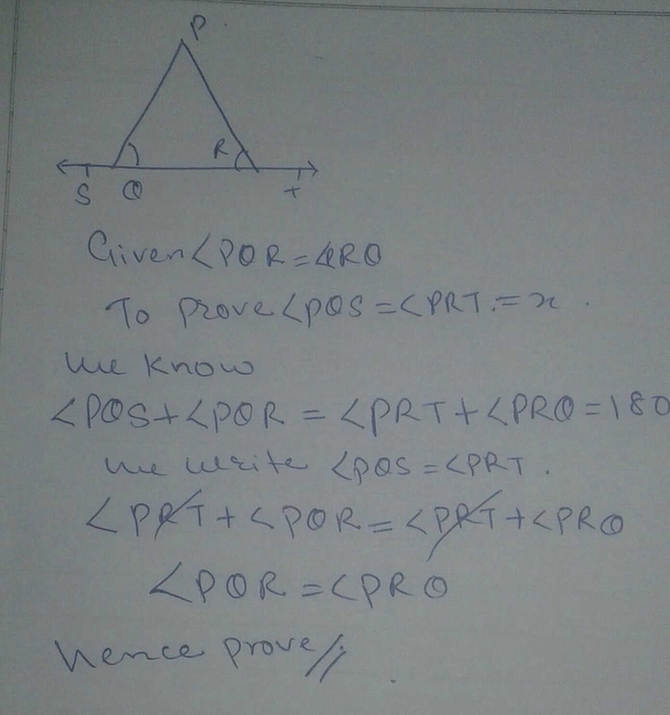 P
R
S Q T
Given ∠PQR = ∠PRQ
To prove ∠PQS = ∠PRT = x .
We know
∠PQS + ∠PQR = ∠PRT + ∠PRQ = 180
we write ∠PQS = ∠PRT .
∠PRT + ∠PQR = ∠PRT + ∠PRQ
∠PQR = ∠PRQ
hence prove //